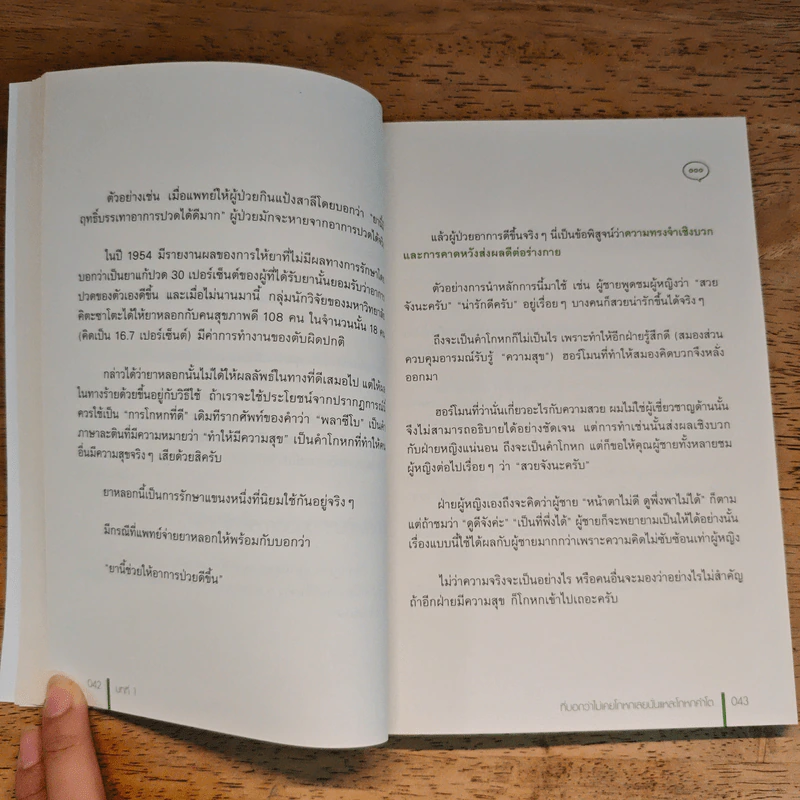 ตัวอย่างเช่น เมื่อแพทย์ให้ผู้ป่วยกินแป้งสาลีโดยบอกว่า "ยานี้มี
ฤทธิ์บรรเทาอาการปวดได้ดีมาก" ผู้ป่วยมักจะหายจากอาการปวดได้
ในปี 1954 มีรายงานผลของการให้ยาที่ไม่มีผลทางการรักษาโดย
บอกว่าเป็นยาแก้ปวด 30 เปอร์เซ็นต์ของผู้ที่ได้รับยานั้นยอมรับว่าอาการ
ปวดของตัวเองดีขึ้น และเมื่อไม่นานมานี้ กลุ่มนักวิจัยของมหาวิทยาลัย
คิตะซาโตะได้ให้ยาหลอกกับคนสุขภาพดี 108 คน ในจำนวนนั้น 18 คน
(คิดเป็น 16.7 เปอร์เซ็นต์) มีค่าการทำงานของตับผิดปกติ
กล่าวได้ว่ายาหลอกนั้นไม่ได้ให้ผลลัพธ์ในทางที่ดีเสมอไป แต่ให้
ในทางร้ายด้วยขึ้นอยู่กับวิธีใช้ ถ้าเราจะใช้ประโยชน์จากปรากฏการณ์นี้
ควรใช้เป็น "การโกหกที่ดี" เดิมทีรากศัพท์ของคำว่า "พลาซีโบ" เป็น
ภาษาละตินที่มีความหมายว่า "ทำให้มีความสุข" เป็นคำโกหกที่ทำให้คน
อื่นมีความสุขจริงๆ เสียด้วยสิครับ
ยาหลอกนี้เป็นการรักษาแขนงหนึ่งที่นิยมใช้กันอยู่จริงๆ
มีกรณีที่แพทย์จ่ายยาหลอกให้พร้อมกับบอกว่า
"ยานี้ช่วยให้อาการป่วยดีขึ้น"
042 บทที่ 1
แล้วผู้ป่วยอาการดีขึ้นจริงๆ นี่เป็นข้อพิสูจน์ว่าความทรงจำเชิงบวก
และการคาดหวังส่งผลดีต่อร่างกาย
ตัวอย่างการนำหลักการนี้มาใช้ เช่น ผู้ชายพูดชมผู้หญิงว่า "สวย
จังนะครับ" "น่ารักดีครับ" อยู่เรื่อยๆ บางคนก็สวยน่ารักขึ้นได้จริงๆ
ถึงจะเป็นคำโกหกก็ไม่เป็นไร เพราะทำให้อีกฝ่ายรู้สึกดี (สมองส่วน
ควบคุมอารมณ์รับรู้ "ความสุข") ฮอร์โมนที่ทำให้สมองคิดบวกจึงหลั่ง
ออกมา
ฮอร์โมนที่ว่านั่นเกี่ยวอะไรกับความสวย ผมไม่ใช่ผู้เชี่ยวชาญด้านนั้น
จึงไม่สามารถอธิบายได้อย่างชัดเจน แต่การทำเช่นนั้นส่งผลเชิงบวก
กับฝ่ายหญิงแน่นอน ถึงจะเป็นคำโกหก แต่ก็ขอให้คุณผู้ชายทั้งหลายชม
ผู้หญิงต่อไปเรื่อยๆ ว่า "สวยจังนะครับ"
ฝ่ายผู้หญิงเองถึงจะคิดว่าผู้ชาย "หน้าตาไม่ดี ดูพึ่งพาไม่ได้" ก็ตาม
แต่ถ้าชมว่า "ดูดีจังค่ะ" "เป็นที่พึ่งได้" ผู้ชายก็จะพยายามเป็นให้ได้อย่างนั้น
เรื่องแบบนี้ใช้ได้ผลกับผู้ชายมากกว่าเพราะความคิดไม่ซับซ้อนเท่าผู้หญิง
ไม่ว่าความจริงจะเป็นอย่างไร หรือคนอื่นจะมองว่าอย่างไรไม่สำคัญ
ถ้าอีกฝ่ายมีความสุข ก็โกหกเข้าไปเถอะครับ
ที่บอกว่าไม่เคยโกหกเลยนั่นแหละโกหกคำโต 043